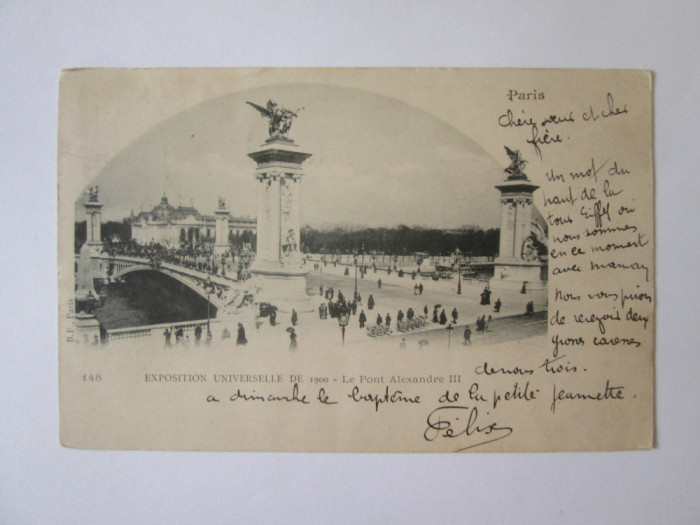 Paris
Chère sœur et cher
frère.
Un mot du
haut de la
tour Eiffel où
nous sommes
en ce moment
avec maman
Nous vous prions
de recevoir deux
grosses caresses
de nous trois.
B.F. Paris
148 EXPOSITION UNIVERSELLE DE 1900 - Le Pont Alexandre III
a dimanche le baptême de la petite Jeannette.
Félix